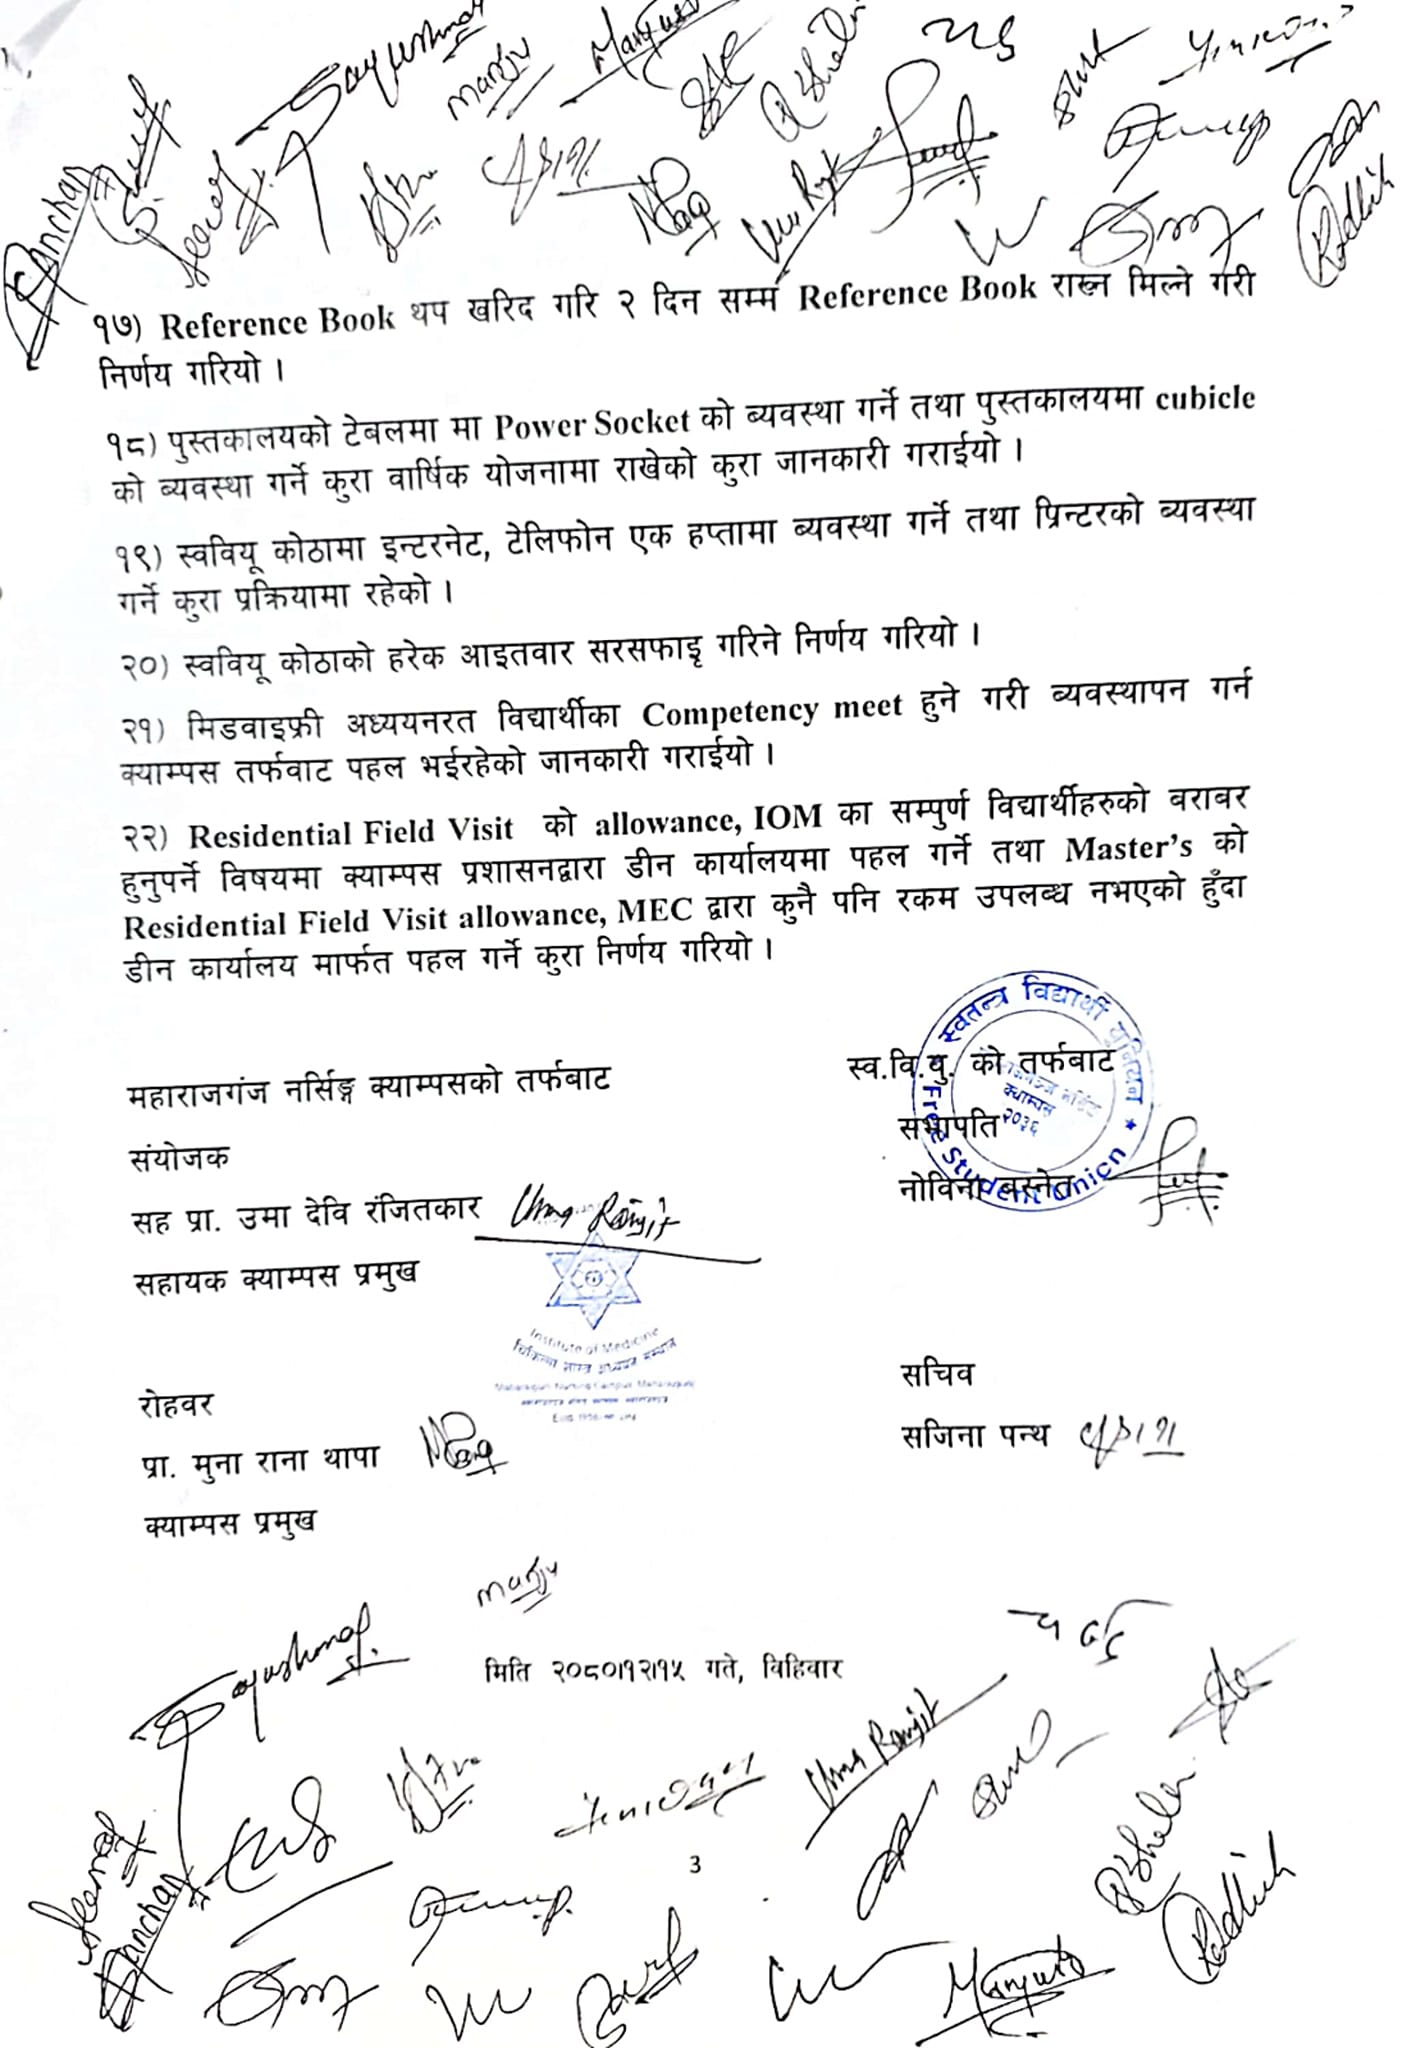 Sayushma
Manju
Manjusa
Panchan
Uma Ranjit
Radhik
१७) Reference Book थप खरिद गरि २ दिन सम्म Reference Book राख्न मिल्ने गरी
निर्णय गरियो ।
१८) पुस्तकालयको टेबलमा मा Power Socket को ब्यवस्था गर्ने तथा पुस्तकालयमा cubicle
को ब्यवस्था गर्ने कुरा वार्षिक योजनामा राखेको कुरा जानकारी गराईयो ।
१९) स्ववियू कोठामा इन्टरनेट, टेलिफोन एक हप्तामा ब्यवस्था गर्ने तथा प्रिन्टरको ब्यवस्था
गर्ने कुरा प्रक्रियामा रहेको ।
२०) स्ववियू कोठाको हरेक आइतवार सरसफाइृ गरिने निर्णय गरियो ।
२१) मिडवाइफ्री अध्ययनरत विद्यार्थीका Competency meet हुने गरी ब्यवस्थापन गर्न
क्याम्पस तर्फवाट पहल भईरहेको जानकारी गराईयो ।
२२) Residential Field Visit को allowance, IOM का सम्पुर्ण विद्यार्थीहरुको वरावर
हुनुपर्ने विषयमा क्याम्पस प्रशासनद्वारा डीन कार्यालयमा पहल गर्ने तथा Master's को
Residential Field Visit allowance, MEC द्वारा कुनै पनि रकम उपलब्ध नभएको हुँदा
डीन कार्यालय मार्फत पहल गर्ने कुरा निर्णय गरियो ।
स्वतन्त्र विद्यार्थी युनियन
क्याम्पस
२०३६
Free Student Union
महाराजगंज नर्सिङ्ग क्याम्पसको तर्फबाट
स्व.वि.यु. को तर्फबाट
संयोजक
सभापति
सह प्रा. उमा देवि रंजितकार Uma Ranjit
नोविना बस्नेत
सहायक क्याम्पस प्रमुख
Institute of Medicine
चिकित्सा शास्त्र अध्ययन संस्थान
Maharajgunj Nursing Campus, Maharajgunj
रोहवर
सचिव
प्रा. मुना राना थापा
सजिना पन्थ
क्याम्पस प्रमुख
Manju
Sayushma
मिति २०८०।१२।१५ गते, विहिवार
Uma Ranjit
Panchan
3
Manjusa
Radhik